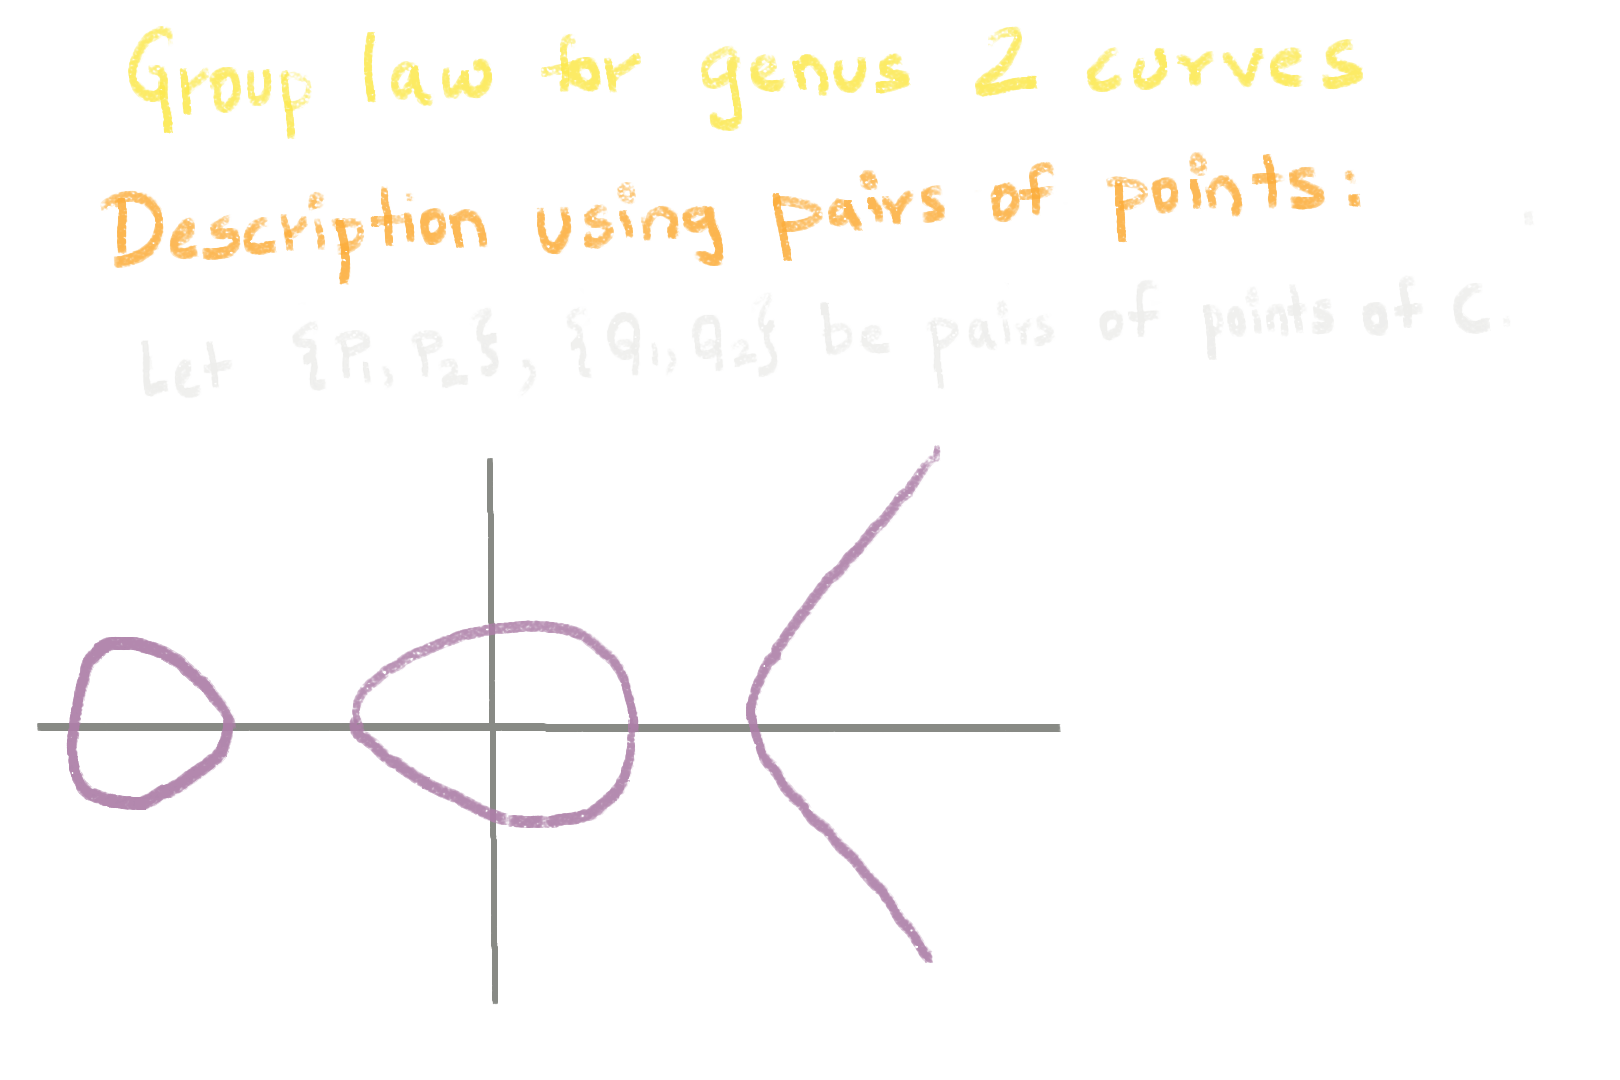 Group law for genus 2 curves
Description using pairs of points:
Let {P₁, P₂}, {Q₁, Q₂} be pairs of points of C.